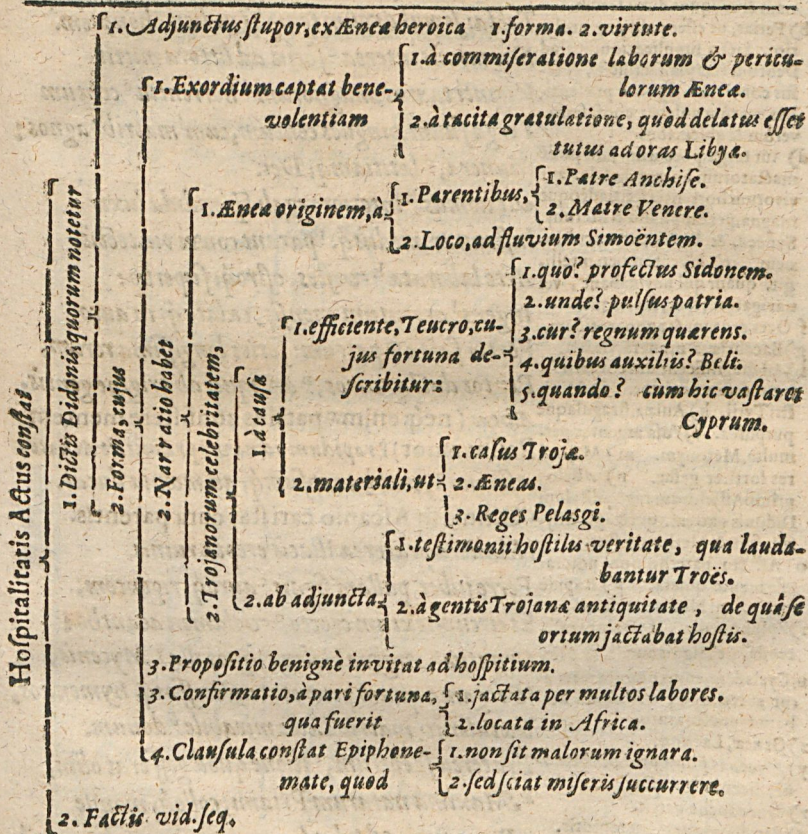 Hospitalitatis Actus constat
1. Dictis Didonis, quorum notetur
1. Adjunctus stupor, ex Ænea heroica 1. forma. 2. virtute.
2. Forma, cujus
1. Exordium captat bene-
volentiam
1. à commiseratione laborum & pericu-
lorum Æneæ.
2. à tacita gratulatione, quòd delatus esset
tutus ad oras Libyæ.
2. Narratio habet
1. Æneæ originem, à
1. Parentibus,
1. Patre Anchise.
2. Matre Venere.
2. Loco, ad fluvium Simoëntem.
2. Trojanorum celebritatem,
1. à causa
1. efficiente, Teucro, cu-
jus fortuna de-
scribitur:
1. quò? profectus Sidonem.
2. unde? pulsus patria.
3. cur? regnum quærens.
4. quibus auxiliis? Beli.
5. quando? cùm hic vastaret
Cyprum.
2. materiali, ut
1. casus Trojæ.
2. Æneas.
3. Reges Pelasgi.
2. ab adjuncta
1. testimonii hostilis veritate, qua lauda-
bantur Troës.
2. à gentis Trojanæ antiquitate, de quâ se
ortum jactabat hostis.
3. Propositio benignè invitat ad hospitium.
3. Confirmatio, à pari fortuna,
qua fuerit
1. jactata per multos labores.
2. locata in Africa.
4. Clausula constat Epiphone-
mate, quòd
1. non sit malorum ignara.
2. sed sciat miseris succurrere.
2. Factis vid. seq.